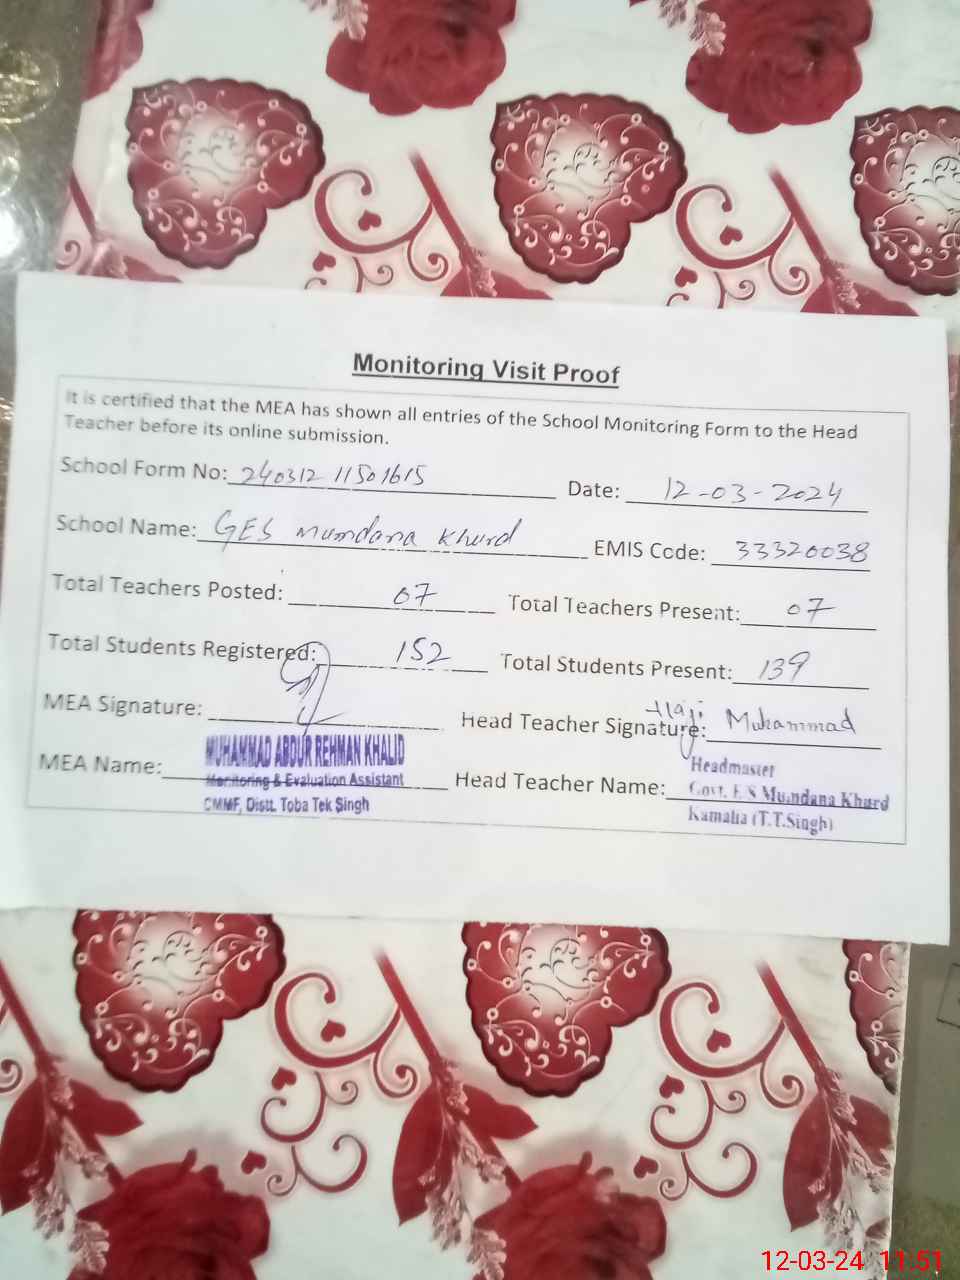 Monitoring Visit Proof
It is certified that the MEA has shown all entries of the School Monitoring Form to the Head
Teacher before its online submission.
School Form No: 240312 11501615 Date: 12-03-2024
School Name: GES Mundana Khurd EMIS Code: 33320038
Total Teachers Posted: 07 Total Teachers Present: 07
Total Students Registered: 152 Total Students Present: 139
MEA Signature: Head Teacher Signature: Haji Muhammad
MEA Name: MUHAMMAD ABDUR REHMAN KHALID
Monitoring & Evaluation Assistant
CMMF, Distt. Toba Tek Singh
Head Teacher Name: Headmaster
Govt. E S Mundana Khurd
Kamalia (T.T.Singh)
12-03-24 11:51